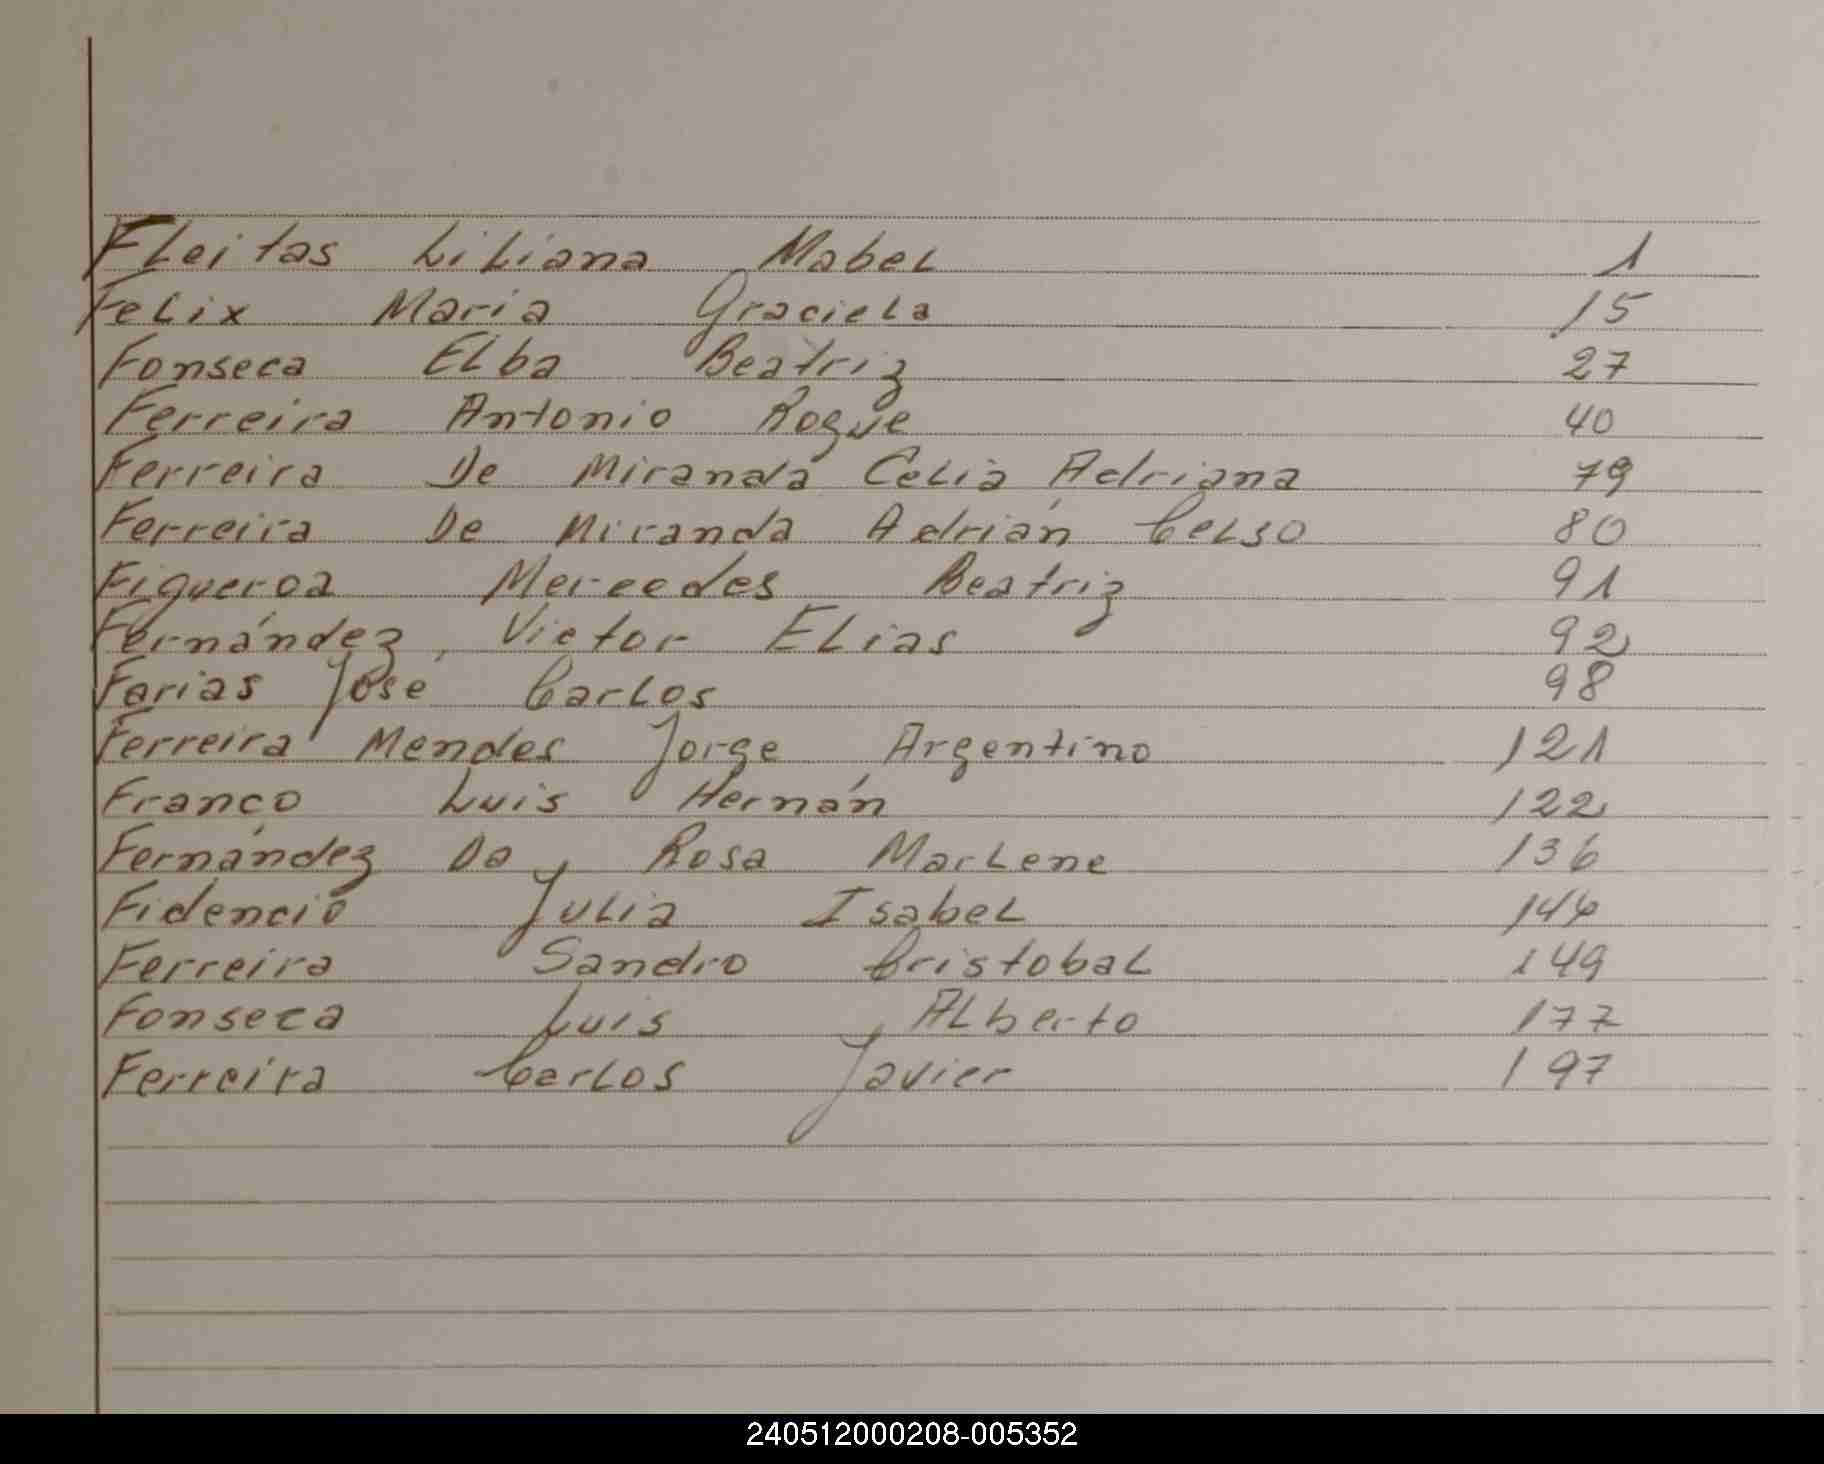 Fleitas Liliana Mabel 1
Felix Maria Graciela 15
Fonseca Elba Beatriz 27
Ferreira Antonio Roque 40
Ferreira De Miranda Celia Adriana 79
Ferreira De Miranda Adrián Celso 80
Figueroa Mercedes Beatriz 91
Fernández, Victor Elias 92
Farias José Carlos 98
Ferreira Mendes Jorge Argentino 121
Franco Luis Hernán 122
Fernández Da Rosa Marlene 136
Fidencio Julia Isabel 144
Ferreira Sandro Cristobal 149
Fonseca Luis Alberto 177
Ferreira Carlos Javier 197
240512000208-005352